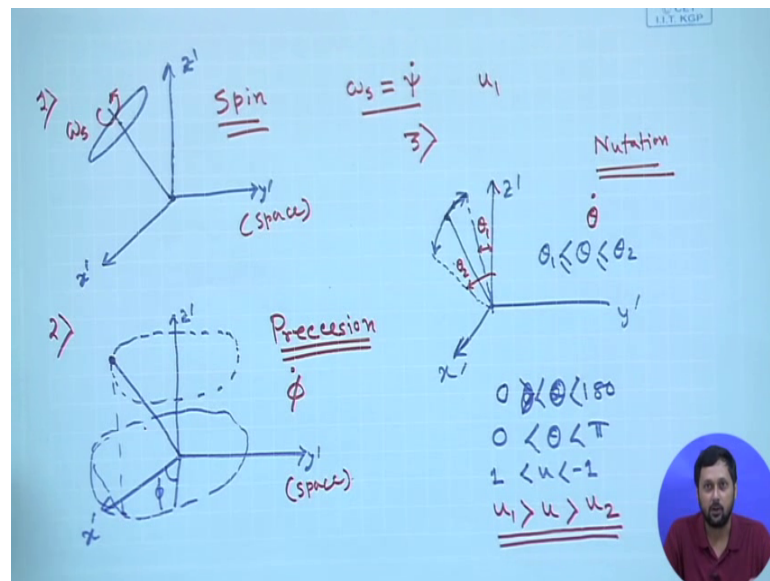 © CET
I.I.T. KGP
1>
z'
ωs
Spin
y'
(space)
x'
ωs = ψ̇
u1
3>
Nutation
z'
θ1
θ2
θ̇
θ1 ≤ θ ≤ θ2
y'
x'
2>
z'
Preccesion
φ̇
y'
(space)
φ
x'
0 < θ < 180
0 < θ < π
1 < u < -1
u1 > u > u2